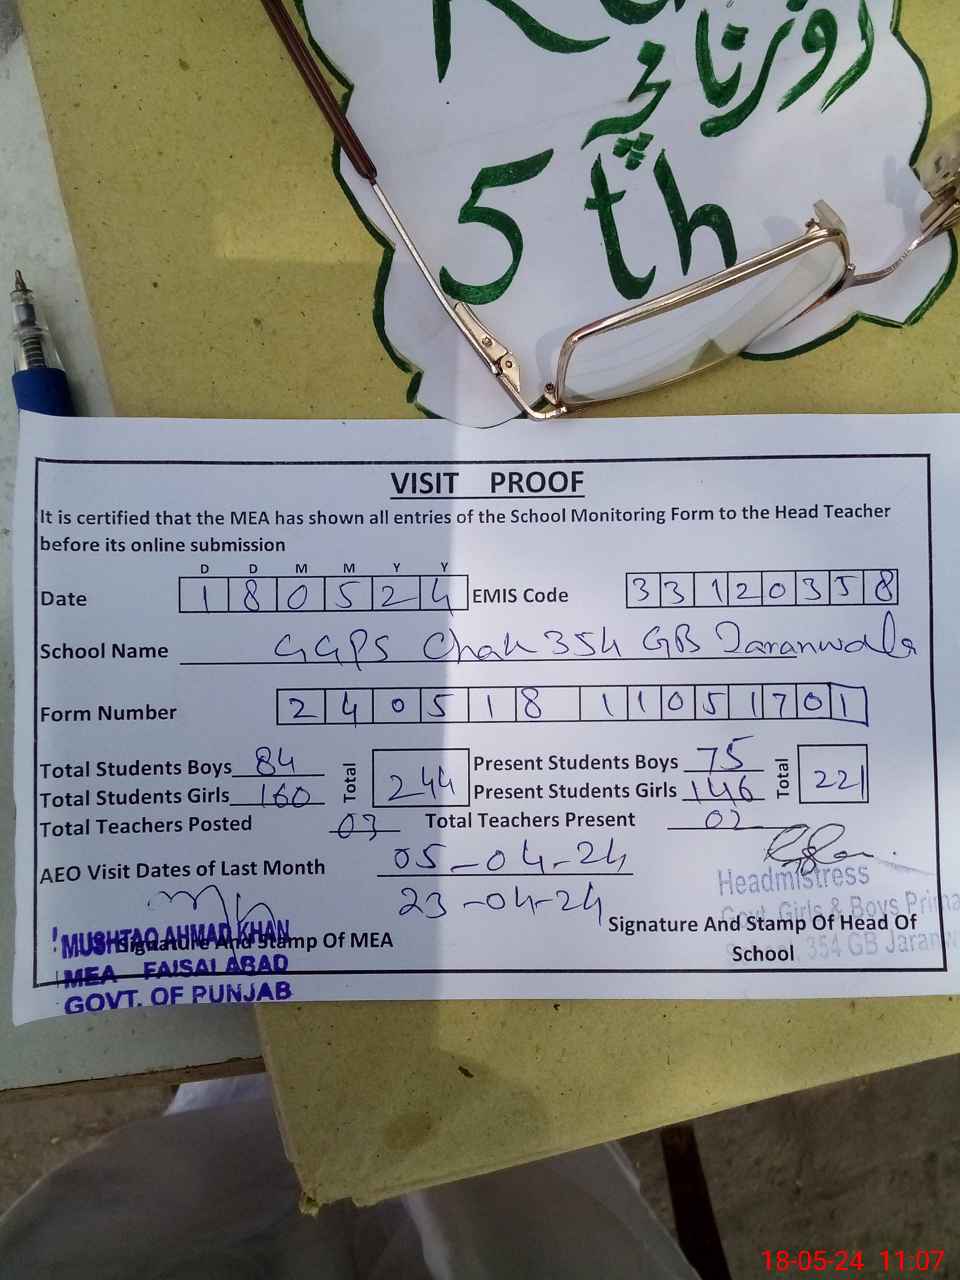 روزنامچہ
5th
VISIT PROOF
It is certified that the MEA has shown all entries of the School Monitoring Form to the Head Teacher
before its online submission
D D M M Y Y
Date 1 8 0 5 2 4 EMIS Code 3 3 1 2 0 3 5 8
School Name GGPS Chak 354 GB Jaranwala
Form Number 2 4 0 5 1 8 1 1 0 5 1 7 0 1
Total Students Boys 84 Total 244 Present Students Boys 75 Total 221
Total Students Girls 160 Present Students Girls 146
Total Teachers Posted 03 Total Teachers Present 02
AEO Visit Dates of Last Month 05-04-24
23-04-24
Headmistress
Govt. Girls & Boys Prima
354 GB Jaranw
Signature And Stamp Of Head Of
School
Signature And Stamp Of MEA
MUSHTAQ AHMAD KHAN
MEA FAISALABAD
GOVT. OF PUNJAB
18-05-24 11:07